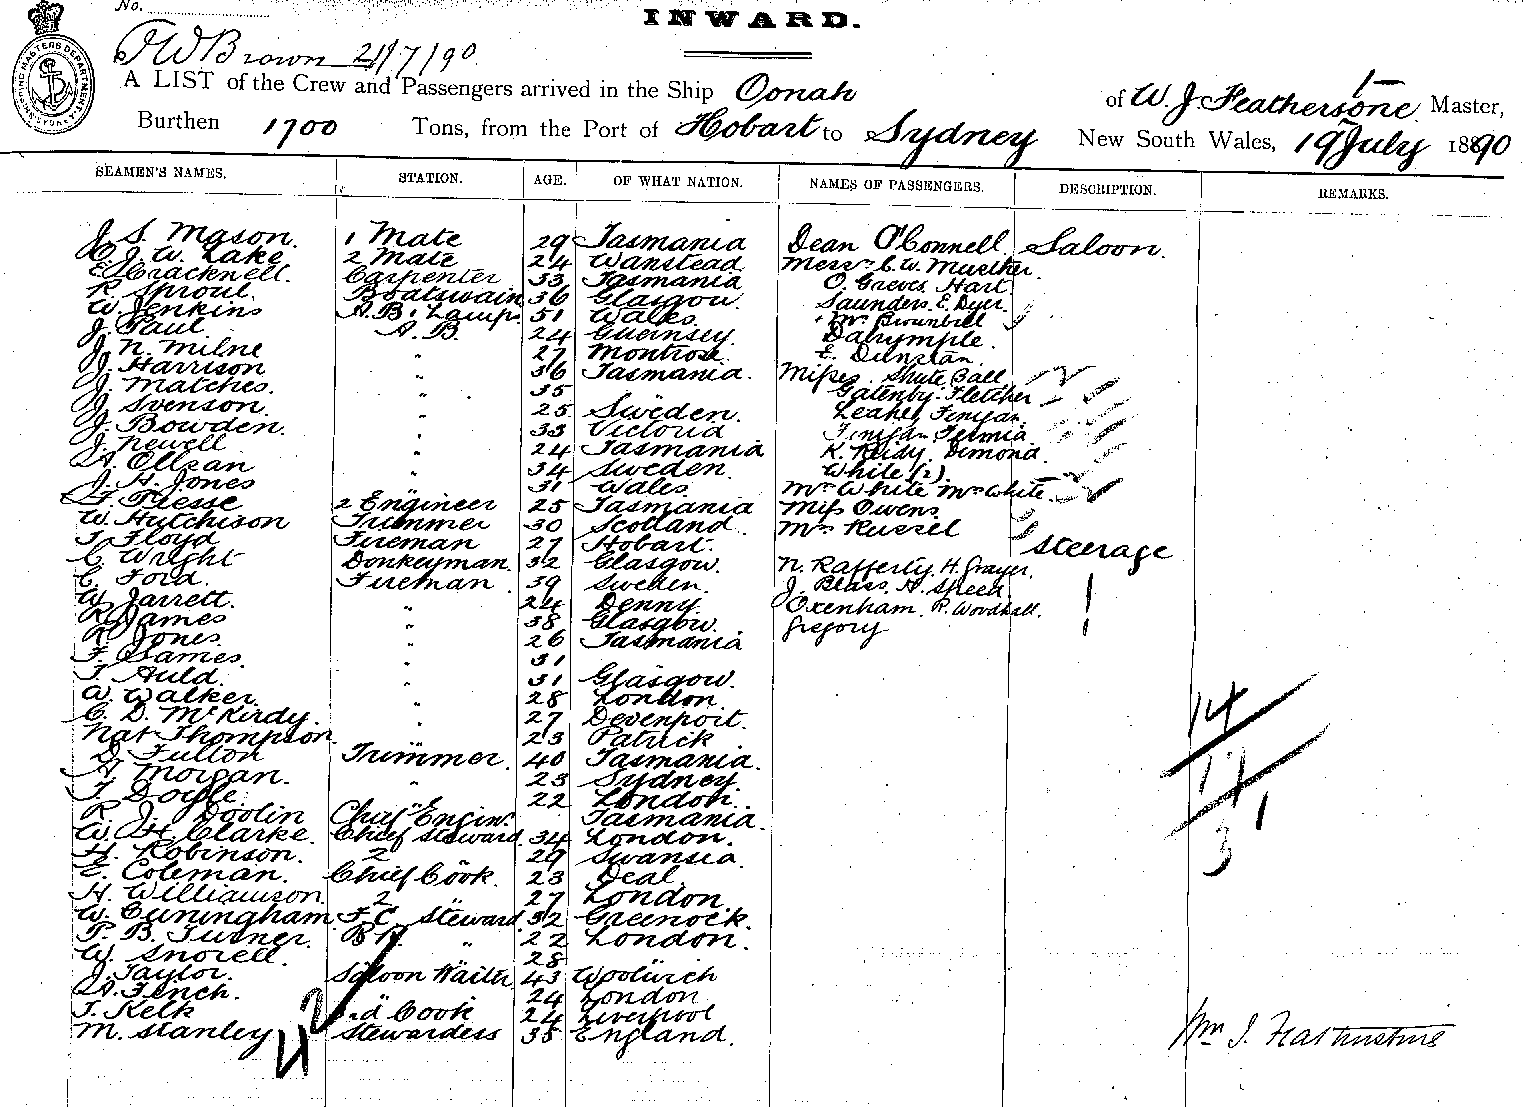 No.
INWARD.
J W Brown 21/7/90
A LIST of the Crew and Passengers arrived in the Ship Oonah of W. J. Featherstone Master,
Burthen 1700 Tons, from the Port of Hobart to Sydney New South Wales, 19 July 1890
SEAMEN'S NAMES. STATION. AGE. OF WHAT NATION. NAMES OF PASSENGERS. DESCRIPTION. REMARKS.
J. S. Mason. 1 Mate 29 Tasmania Dean O'Connell Saloon.
J. W. Lake 2 Mate 24 Wanstead Messrs C. W. Mueller.
E. Cracknell. Carpenter 33 Tasmania O. Greeves Hart
R. Sproul. Boatswain 36 Glasgow. Saunders. E. Dyer.
W. Jenkins A.B. Lamps. 51 Wales. Mr Brownbill
J. Paul A.B. 24 Guernsey. Dalrymple.
J. N. Milne " 27 Montrose. E. Dunstan.
J. Harrison " 36 Tasmania. Misses Shute Ball
J. Matches. " 35 Gatenby. Fletcher
J. Svenson. " 25 Sweden. Leahey
J. Bowden. " 33 Victoria
J. Newell " 24 Tasmania K. Reidy, Dimond.
A. Ollsan " 34 Sweden. White (2)
J. H. Jones " 31 Wales. Mr White Mrs White.
Riesse 2 Engineer 25 Tasmania Miss Owens.
W. Hutchison Trimmer 30 Scotland. Mrs Russel
T. Floyd Fireman 27 Hobart. Steerage
C. Wright Donkeyman. 32 Glasgow. N. Rafferty. H. Grayer.
C. Ford. Fireman. 39 Sweden. J. Blass. H. Speed.
W. Jarrett. " 24 Denny. Oxenham. R. Woodhall.
R. James " 38 Glasgow. Gregory
R. Jones. " 26 Tasmania
F. Sames. " 31
T. Auld. " 31 Glasgow.
W. Walker. " 28 London.
C. D. McKirdy. " 27 Devenport.
Nat Thompson " 23 Patrick
D. Fulton Trimmer. 40 Tasmania.
A. Morgan. " 23 Sydney.
T. Doyle. " 22 London.
R. J. Doolin Chief Engin. Tasmania.
W. H. Clarke. Chief Steward. 34 London.
H. Robinson. 2 " 29 Swansia.
E. Coleman. Chief Cook. 23 Deal.
H. Williamson. 2 " 27 London.
W. Cuningham F.C. Steward. 32 Greenock.
P. B. Turner. " 22 London.
W. Snorell. 28
J. Taylor. Saloon Waiter 43 Woolwich
A. Finch. " 24 London
T. Kelk Cook 24 Liverpool
M. Stanley Stewardess 35 England.
42
14
17
1
3